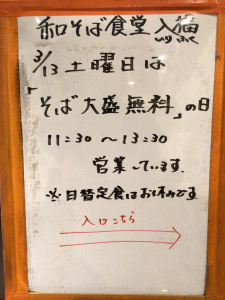 和そば食堂 入猫
3/13 土曜日は
「そば大盛無料」の日
11:30 〜 13:30
営業しています.
※日替定食はお休みです
入口こちら